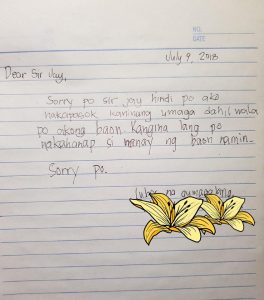 NO.
DATE
July 9, 2018
Dear Sir Jay,
Sorry po sir jay hindi po ako
nakapasok kaninang umaga dahil wala
po akong baon. Kangina lang po
nakahanap si nanay ng baon namin.
Sorry po.
lubos na gumagalang